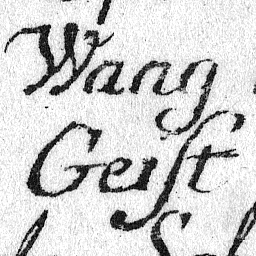 Wang
Geist